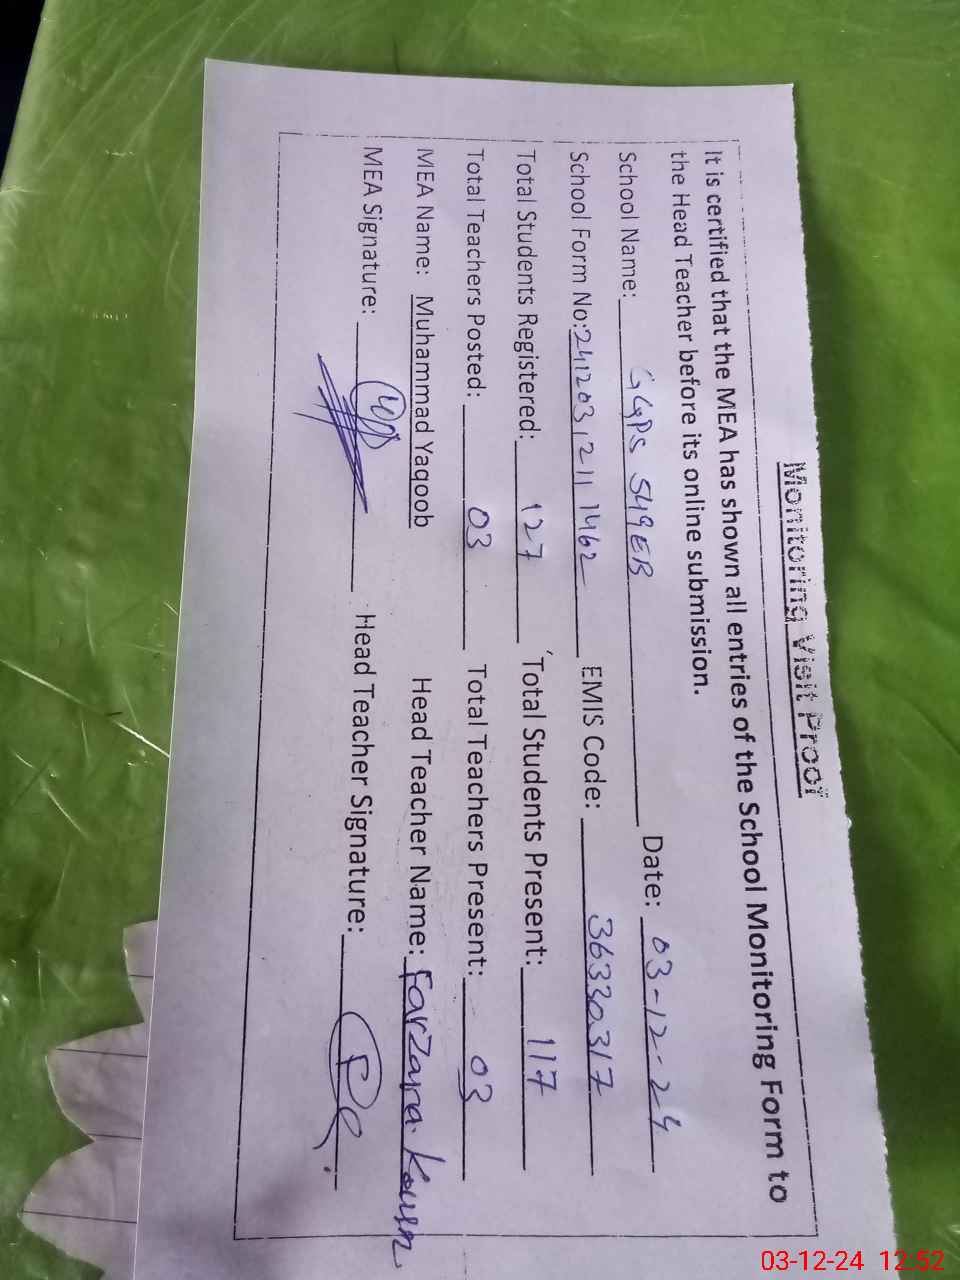 Monitoring Visit Proof
It is certified that the MEA has shown all entries of the School Monitoring Form to
the Head Teacher before its online submission.
School Name: GGPS 549EB Date: 03-12-24
School Form No: 241203 1211 1462 EMIS Code: 36330317
Total Students Registered: 127 Total Students Present: 117
Total Teachers Posted: 03 Total Teachers Present: 03
MEA Name: Muhammad Yaqoob Head Teacher Name: Farzana Kousar
MEA Signature: Head Teacher Signature:
03-12-24 12:52